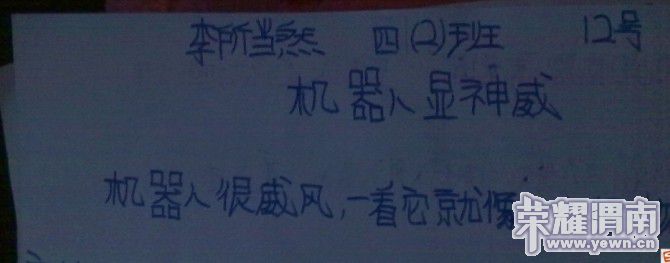 李所当然 四(2)班 12号
机器人显神威
机器人很威风,一看它就像
荣耀渭南
www.yewn.cn